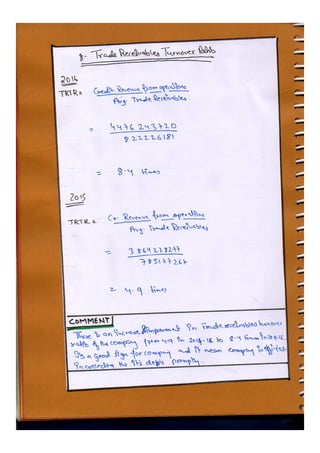 8. Trade Receivables Turnover Ratio
2016
TRTR = Credit Revenue from operations
Avg. Trade Receivables.
= 4476243720
822226181
= 8.4 times
2015
TRTR = Cr. Revenue from operation
Avg. Trade Receivables
= 3864228277
785177267
= 4.9 times
COMMENT
There is an increase & improvement in Trade receivables turnover
ratio of the company from 4.9 in to 8.4 times in
Its a good sign for company and it mean company is
in collecting the its debts promptly.